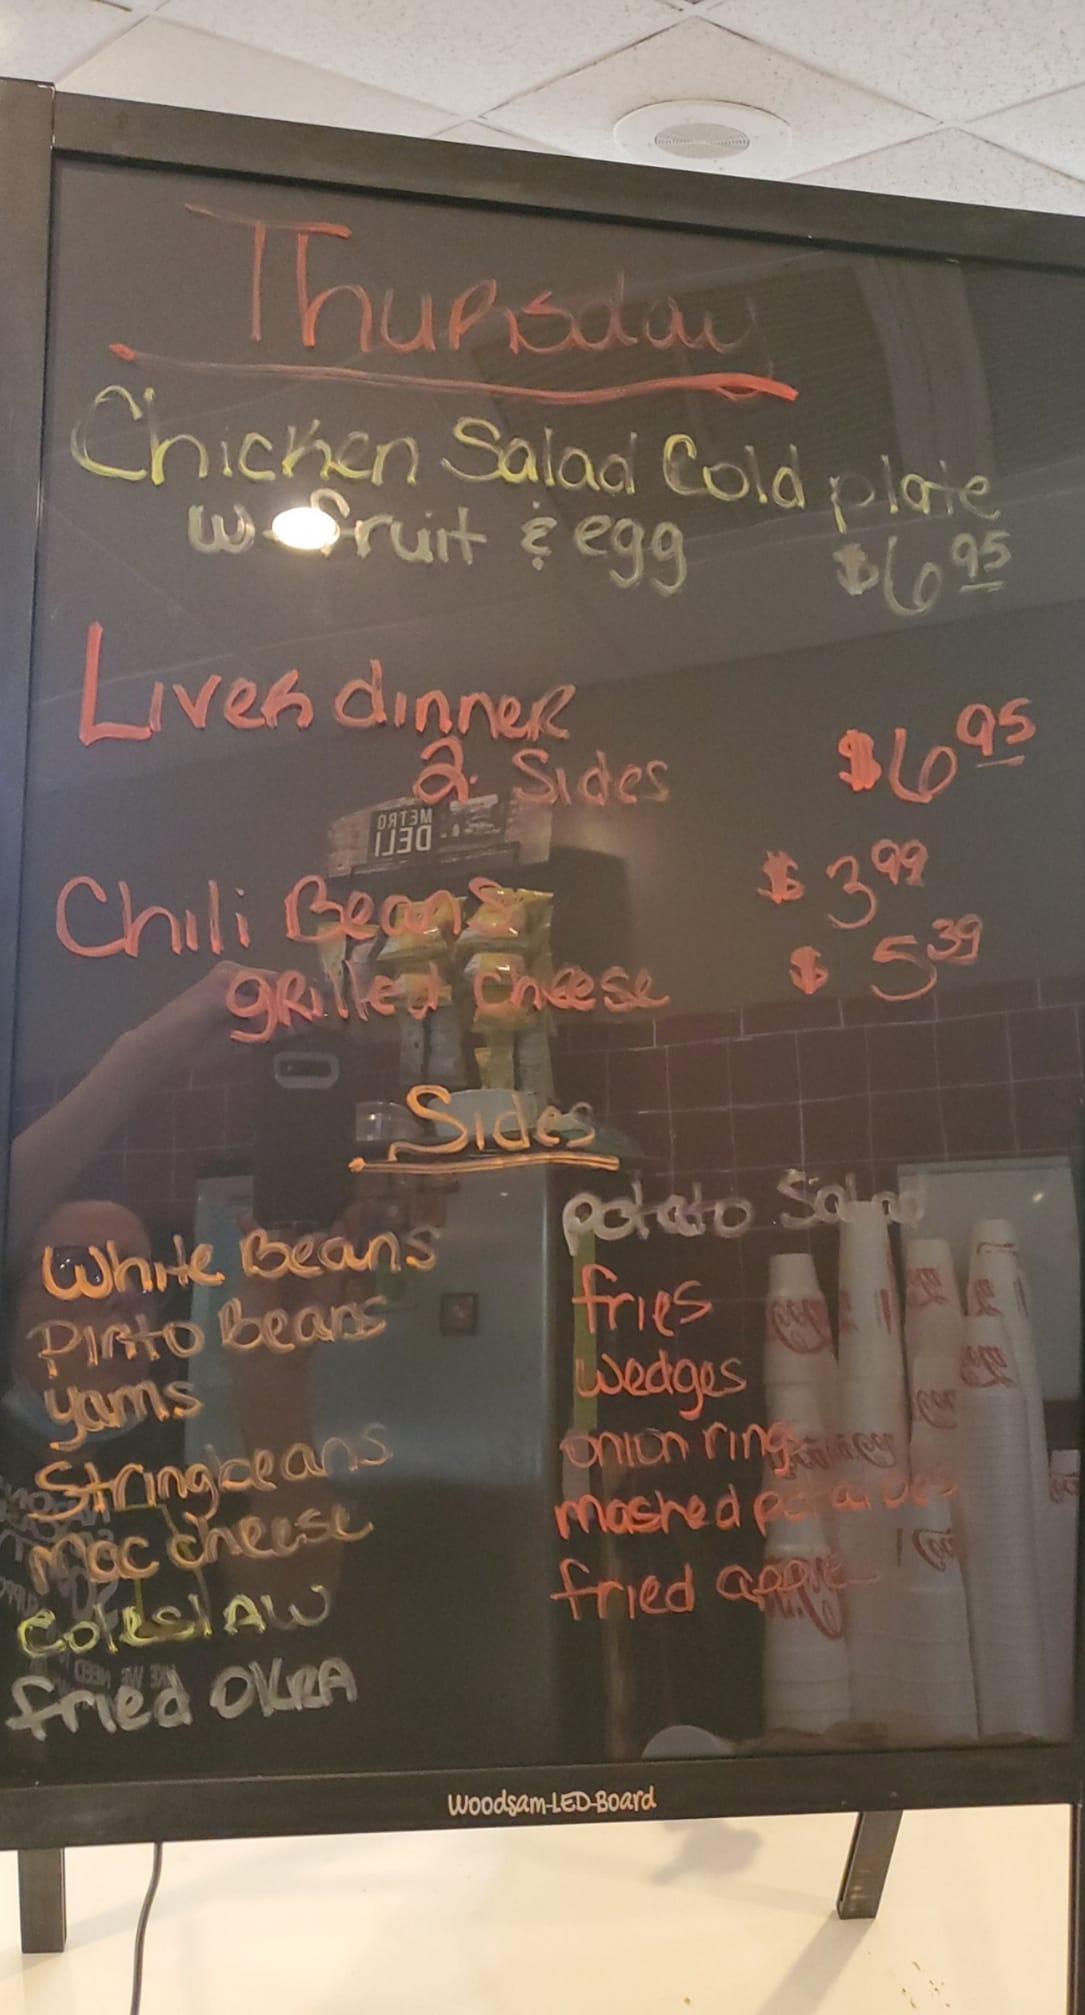 Thursday
Chicken Salad Cold plate
w- fruit & egg $6 95
Liver dinner
2 Sides $6 95
Chili Beans $ 3 99
grilled cheese $ 5 39
METRO
DELI
Sides
White Beans
Pinto Beans
yams
Stringbeans
mac cheese
coleslAW
fried OKRA
potato Salad
fries
wedges
onion rings
mashed potatoes
fried apple
Woodsam-LED-Board